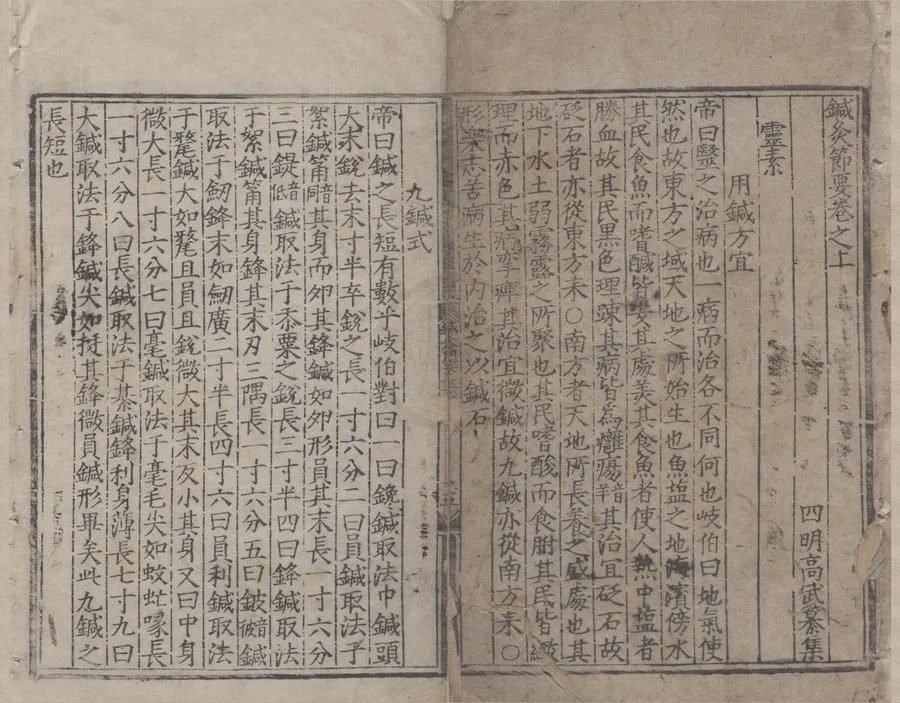 鍼灸節要卷之上
四明高武纂集
靈素
用鍼方宜
帝曰醫之治病也一病而治各不同何也岐伯曰地氣使
然也故東方之域天地之所始生也魚盐之地海濱傍水
其民食魚而嗜鹹皆安其處美其食魚者使人熱中盐者
勝血故其民黑色理疎其病皆為癰瘍其治宜砭石故
砭石者亦從東方来○南方者天地所長養之盛處也其
地下水土弱霧露之所聚也其民嗜酸而食胕其民皆緻
理而赤色其病孿痺其治宜微鍼故九鍼亦從南方来○
形樂志苦病生於內治之以鍼石
九鍼式
帝曰鍼之長短有數乎岐伯對曰一曰鑱鍼取法巾鍼頭
大末銳去末寸半卒銳之長一寸六分二曰員鍼取法于
絮鍼筩音筒其身而夘其鋒鍼如夘形員其末長一寸六分
三曰鍉音低鍼取法于黍粟之銳長三寸半四曰鋒鍼取法
于絮鍼筩其身鋒其末刃三隅長一寸六分五曰鈹音彼鍼
取法于劒鋒末如劒廣二寸半長四寸六曰員利鍼取法
于氂鍼大如氂且員且銳微大其末反小其身又曰中身
微大長一寸六分七曰毫鍼取法于毫毛尖如蚊䖟喙長
一寸六分八曰長鍼取法于綦鍼鋒利身薄長七寸九曰
大鍼取法于鋒鍼尖如挺其鋒微員鍼形畢矣此九鍼之
長短也